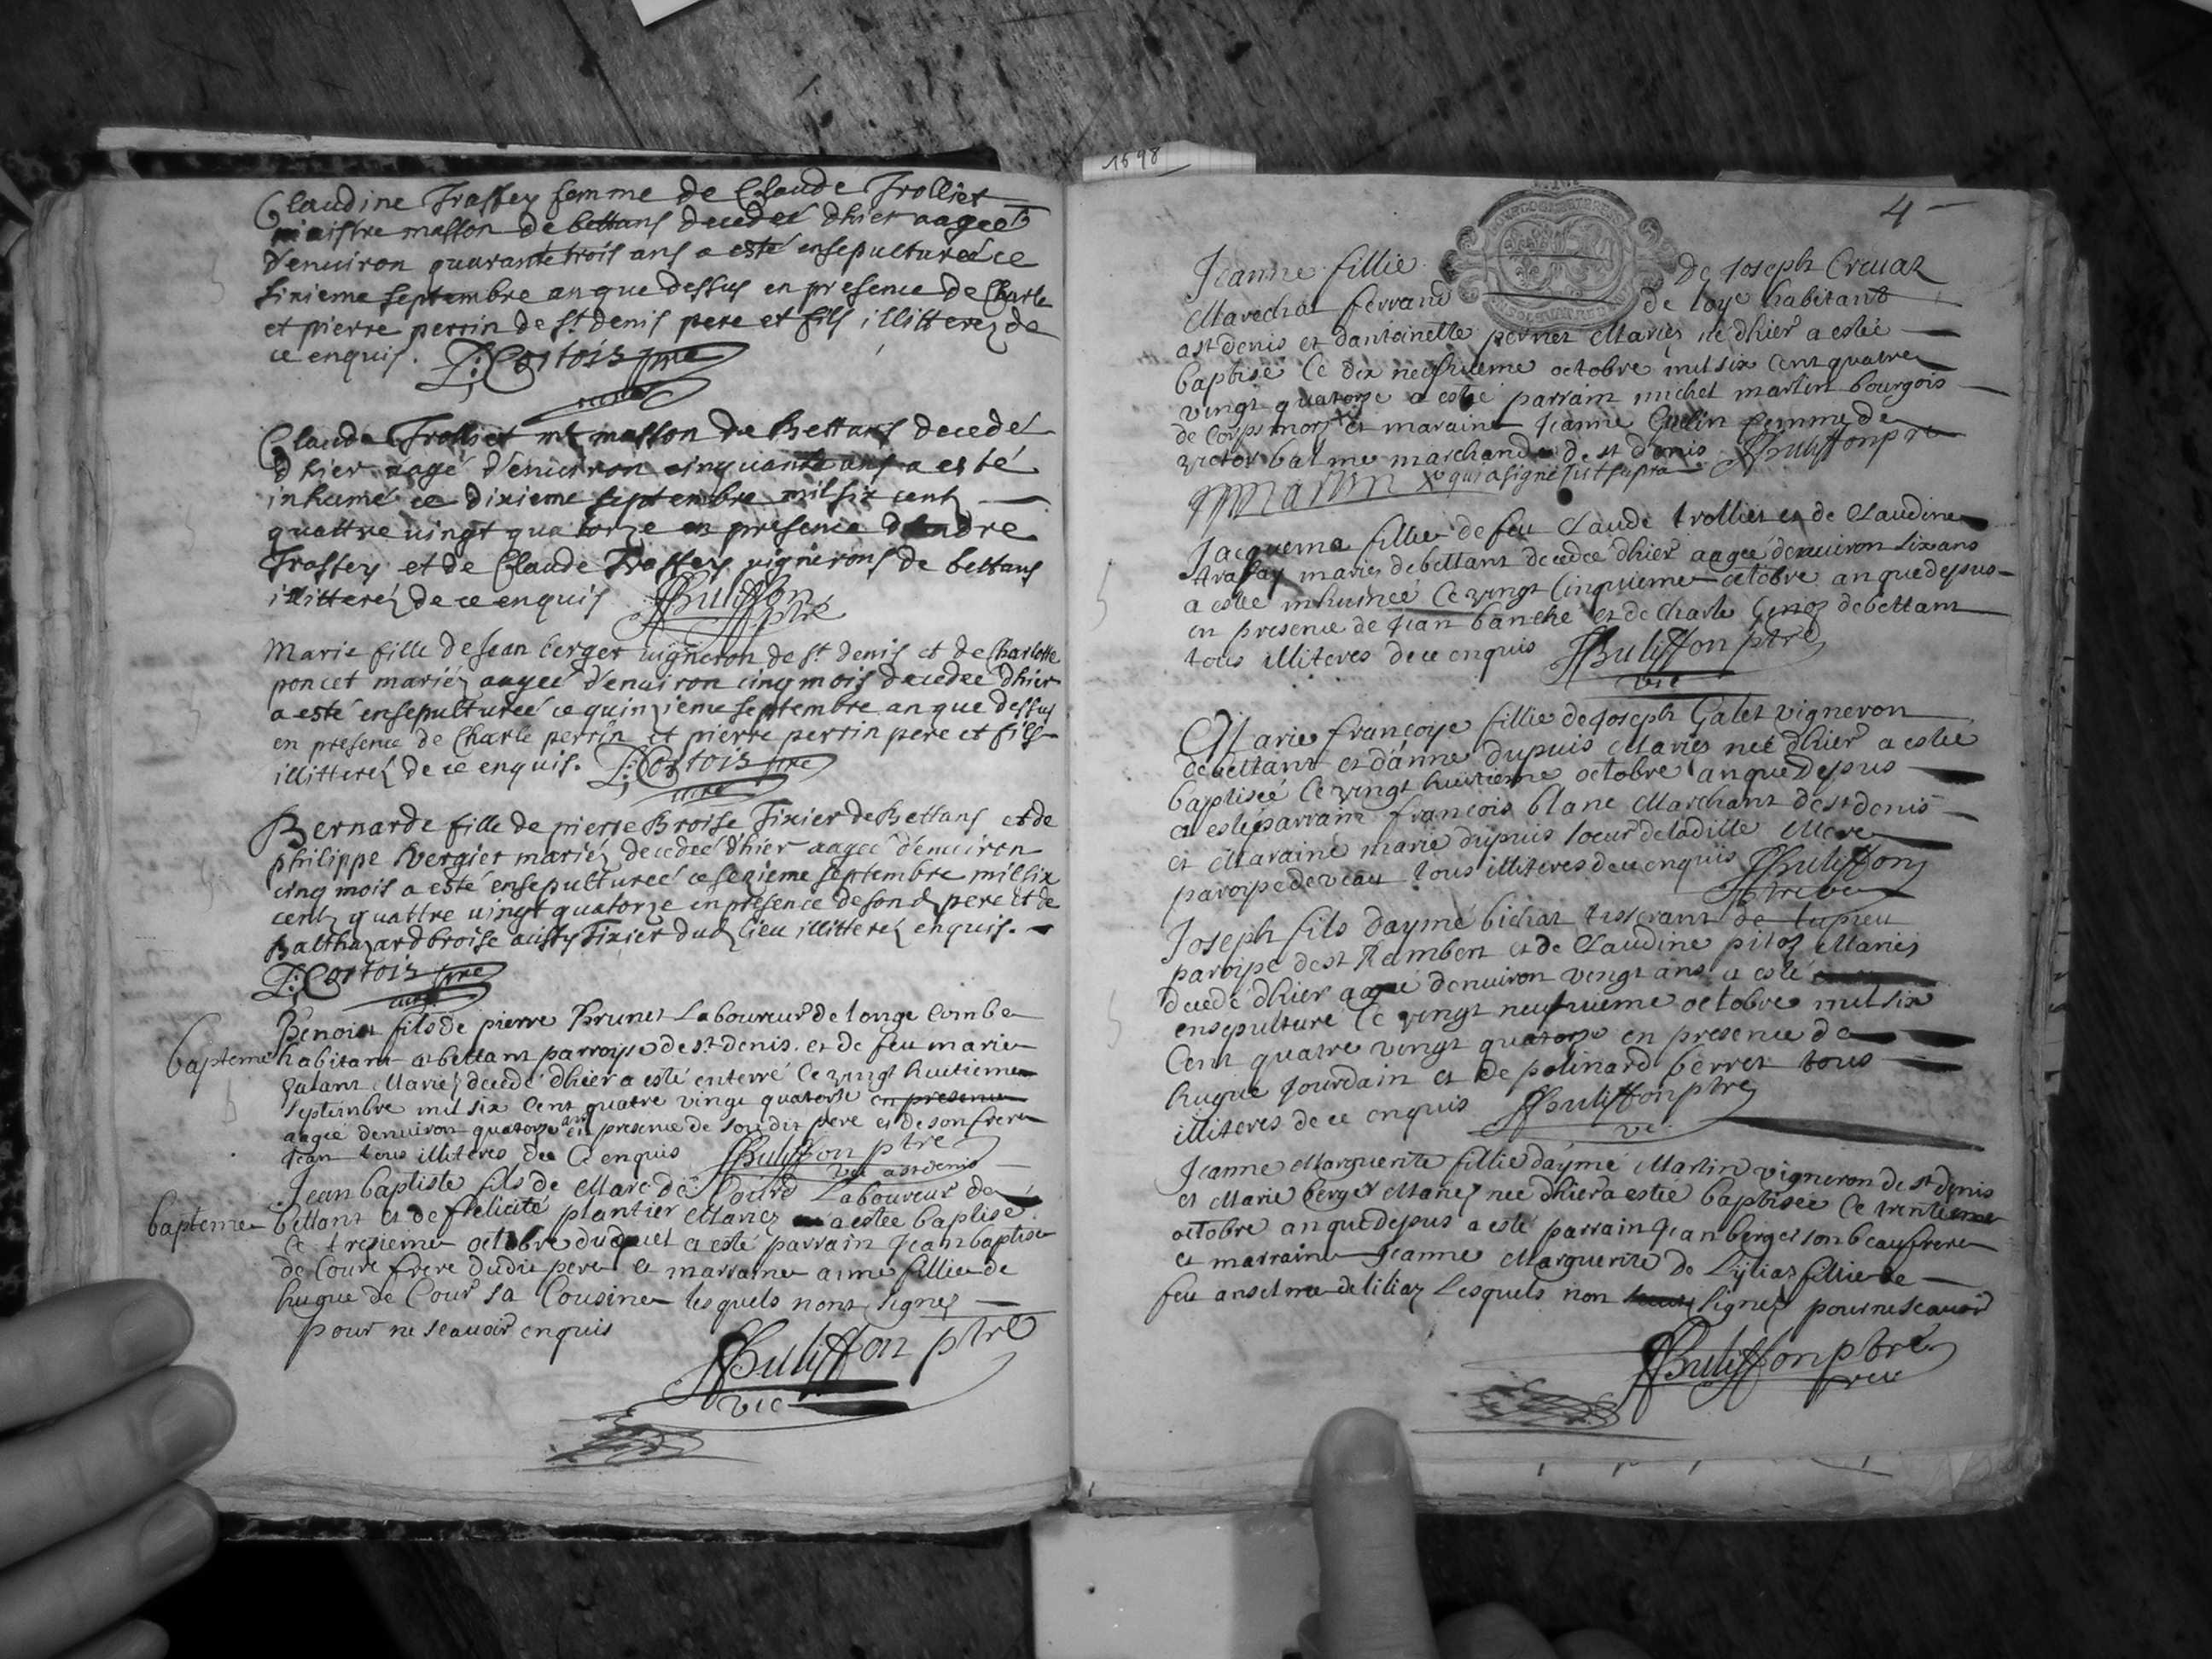 Claudine Trassey femme de Claude Trolliet
maistre masson de bettans decedeé dhier aageé
d'enuiron quarante trois ans a esté ensepultureé ce
sixieme septembre an que dessus en presence de Charle
et pierre perrin de st denis pere et fils illitterez de
ce enquis. Cortois pre
Claude Trolliet mt masson de Bettans decedé
dhier aagé d'enuiron cinquante ans a esté
inhumé ce dixieme septembre mil six cent
quattre uingt quatorze en presence d'andre
Trassey et de Claude Trassey uignerons de bettans
illitterez de ce enquis Buliffon
ptre
Marie fille de Jean berger uigneron de st denis et de Charlotte
poncet mariez aageé d'enuiron cinq mois decedeé dhier
a esté ensepultureé ce quinzieme septembre an que dessus
en presence de Charle perrin et pierre perrin pere et fils
illitterez de ce enquis. Cortois pre
Bernarde fille de pierre Broise Tixier de Bettans et de
philippe Vergier mariez decedeé dhier aageé d'enuiron
cinq mois a esté ensepultureé ce sezieme septembre mil six
cent quattre uingt quatorze en presence de sond pere et de
Balthazard broise aussy Tixier dud lieu illitterez enquis.
Cortois pre
Benoist fils de pierre Brunet Laboureur de longe Combe
bapteme habitant a bettant parroisse de st denis et de feu marie
Galant Mariez decedé dhier a esté enterré Ce vingt huitieme
septembre mil six Cent quatre vingt quatorse en presence
aagee denuiron quatorze ans en presence de son dit pere et de son frere
Jean tous illiteres de Ce enquis Buliffon ptre
vic a st denis
Jean baptiste fils de Marc de Courd Laboureur de
bapteme bettant et de felicite plantier Mariez a estee baptise
Ce tresieme octobre duquel a esté parrain Jean baptiste
de Cour frere dudit pere et marraine anne fillie de
hugue de Cour sa Cousine lesquels nont signez
pour ne scauoir enquis
Buliffon ptre
vic
1698
4
Jeanne fillie de Joseph Creuaz
Marechal ferrand de loye habitant
a st denis et dantoinette pernet Mariez né dhier a estée
baptise Ce dix neufuieme octobre mil six Cent quatre
vingt quatorze a esté parrain michel martin bourgois
de et maraine Jeanne femme de
victor balme marchand de st denis Buliffon ptre
Martin x qui a signé
Jacquema fillie de feu Claude trolliet et de Claudine
trassay mariez de bettant decedee dhier aagee denuiron six ans
a estee inhumeé Ce vingt Cinquieme octobre an que depus
en presence de Jean banché et de Charle de bettant
tous illiteres de ce enquis Buliffon ptre
vic
Marie françoise fillie de Joseph Galet vigneron
de bettant et d'anne dupuis Mariés neé dhier a estée
baptiseé Ce vingt huitieme octobre an que depus
a esté parrain françois blanc Marchant de st denis
et Maraine marie dupuis soeur de ladille Mere
tous illiteres de ce enquis Buliffon
ptre vic
Joseph fils dayme bichat tisserant de lupieu
paroipe de st Rambert et de Claudine pitoz Mariés
decedé dhier aagé denuiron vingt ans a esté
ensepulture Ce vingt neufuieme octobre mil six
Cent quatre vingt quatorze en presence de
hugue Jourdain et de polinard berret tous
illiteres de ce enquis Buliffon ptre
vic
Jeanne Marguerite fillie daymé Martin vigneron de st denis
et Marie berger Mariez nee dhier a estée baptisee Ce trentieme
octobre an que depus a esté parrain Jean berger son beaufrere
et marraine Jeanne Marguerite de Lyliaz fillie de
feu anselme de liliaz Lesquels non signez pour ne scauoir
Buliffon ptre
vic